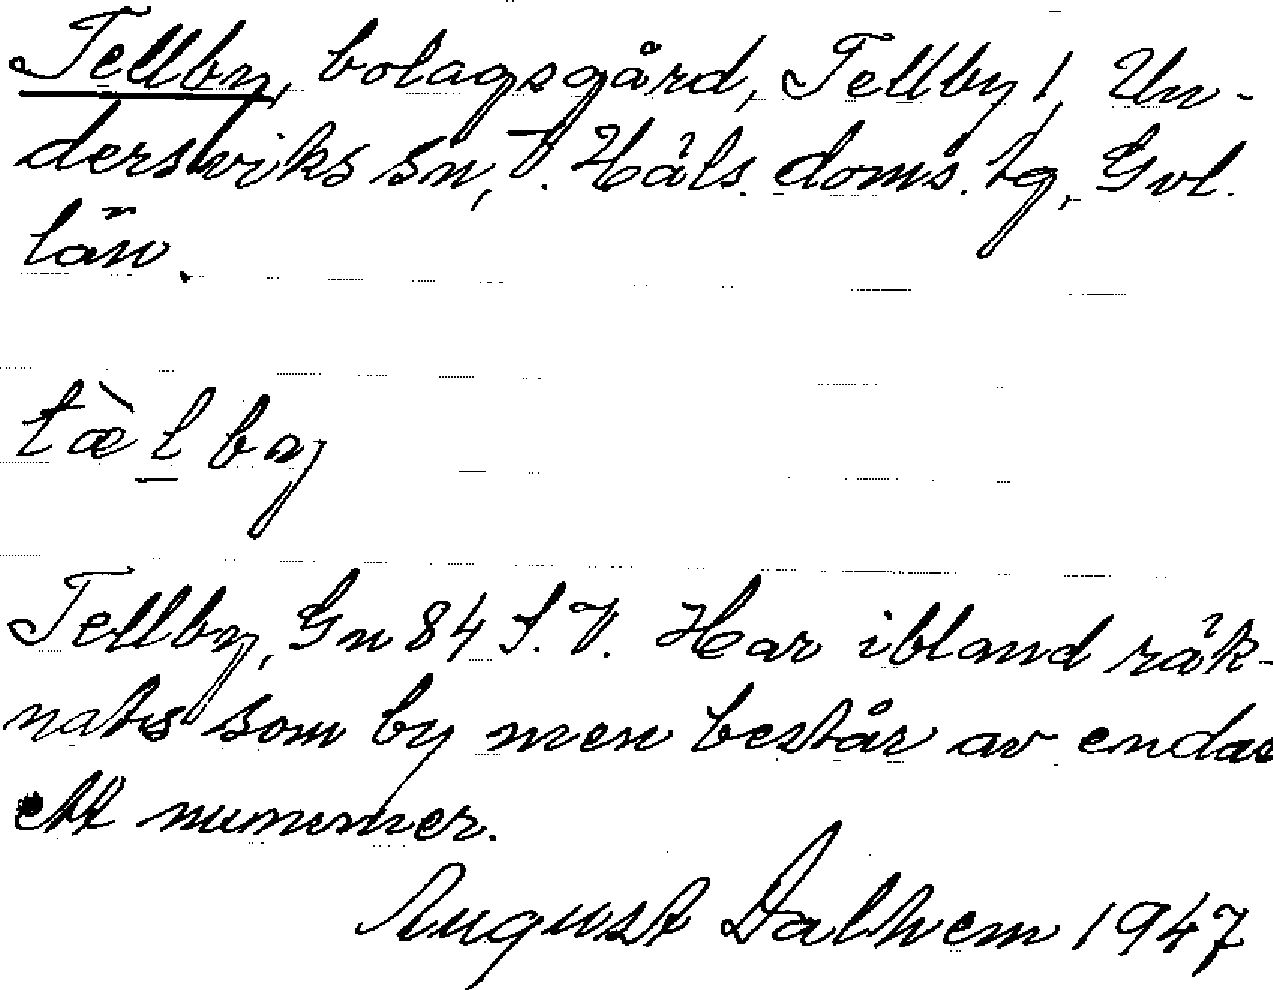 Tellby, bolagsgård, Tellby 1, Un-
dersviks sn, V. Häls. doms. tg, Gvl.
län.
tæ̀l by
Tellby, Gn 84 S.V. Har ibland räk-
nats som by men består av endast
ett nummer.
August Dalhem 1947